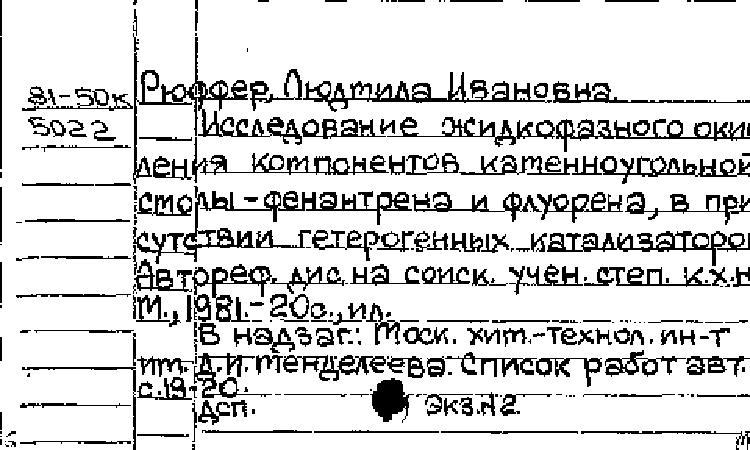 81-50к
5022
Рюффер, Людмила Ивановна.
Исследование жидкофазного окис
ления компонентов каменноугольной
смолы - фенантрена и флуорена, в при
сутствии гетерогенных катализаторов
Автореф. дис. на соиск. учен. степ. к.х.н
М., 1981. - 20с., ил.
В надзаг.: Моск. хим.-технол. ин-т
им. Д.И. Менделеева. Список работ авт.
с. 19-20.
Дсп. Экз. N 2